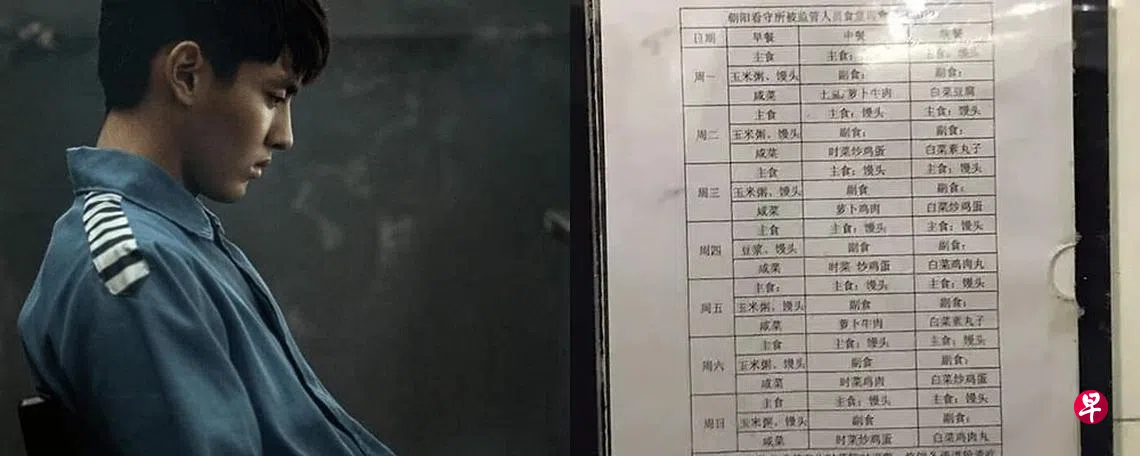 朝阳看守所被监管人员食
日期 早餐 中餐 晚餐
主食 主食: 主食: 馒头
周一 玉米粥、馒头 副食: 副食:
咸菜 土豆/萝卜牛肉 白菜豆腐
主食 主食: 馒头 主食: 馒头
周二 玉米粥、馒头 副食: 副食:
咸菜 时菜炒鸡蛋 白菜素丸子
主食 主食: 馒头 主食: 馒头
周三 玉米粥、馒头 副食 副食:
咸菜 萝卜鸡肉 白菜炒鸡蛋
主食 主食: 馒头 主食: 馒头
周四 豆浆、馒头 副食 副食:
咸菜 时菜 炒鸡蛋 白菜鸡肉丸
主食: 主食: 馒头 主食: 馒头
周五 玉米粥、馒头 副食 副食:
咸菜 萝卜牛肉 白菜素丸子
主食 主食: 馒头 主食: 馒头
周六 玉米粥、馒头 副食 副食:
咸菜 时菜鸡肉 白菜炒鸡蛋
主食 主食: 馒头 主食: 馒头
周日 玉米粥、馒头 副食 副食:
咸菜 时菜炒鸡蛋 白菜鸡肉丸
早